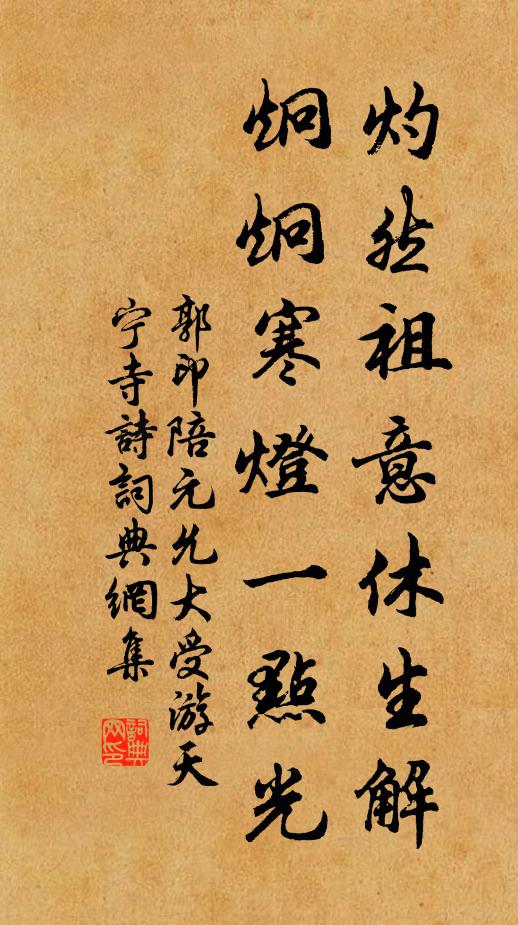 灼然祖意休生解
炯炯寒燈一點光
郭印陪元允大受游天
宁寺詩詞典網集
詞典网印